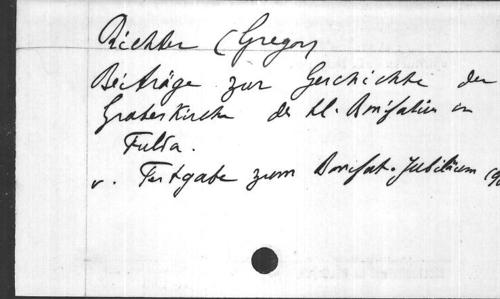 Richter (Gregor)
Beiträge zur Geschichte der
Grabeskirche des hl. Bonifatius in
Fulda.
v. Festgabe zum Bonifat. Jubiläum